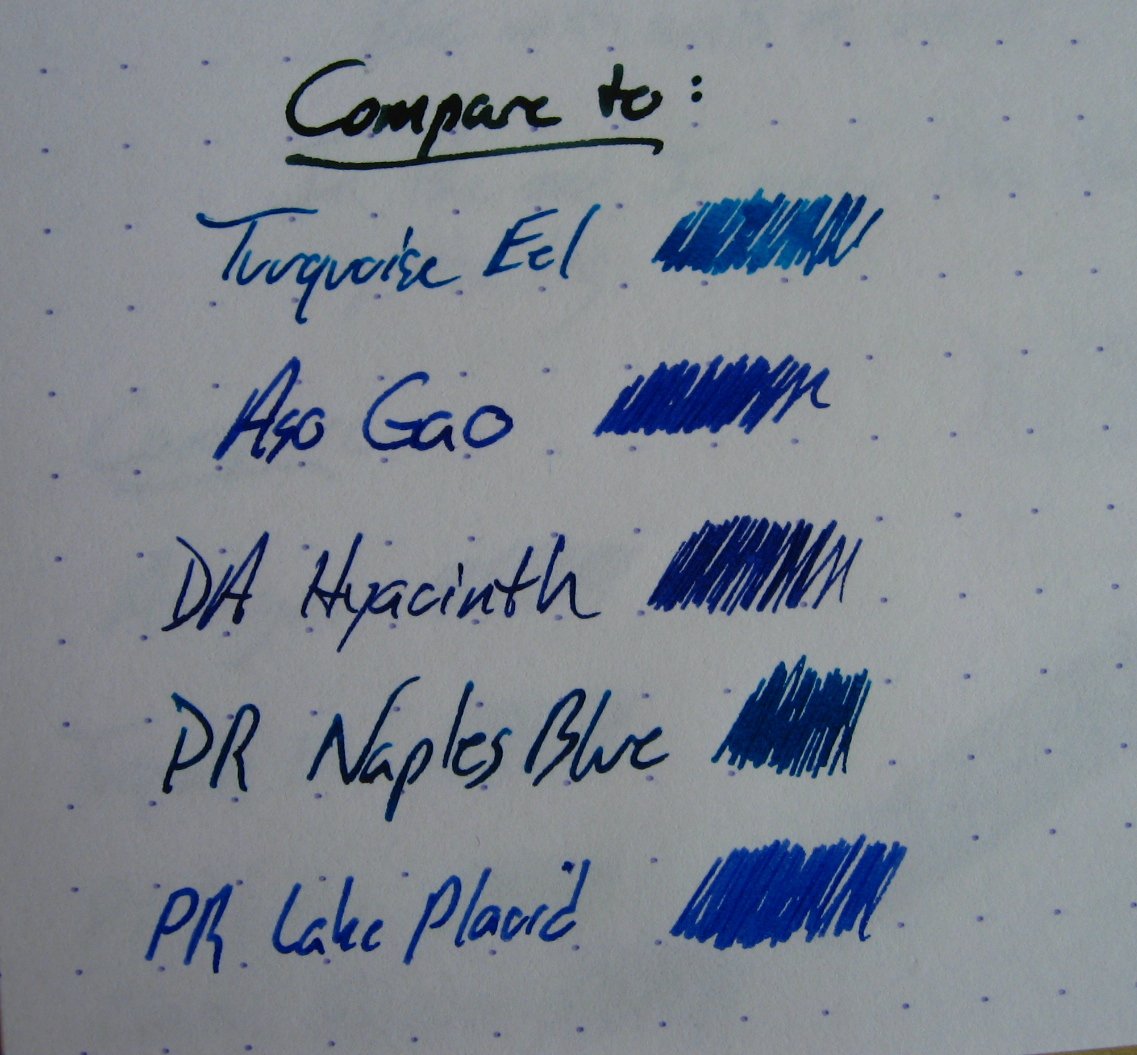 Compare to:
Turquoise Eel
Aso Gao
DA Hyacinth
PR Naples Blue
PR Lake Placid